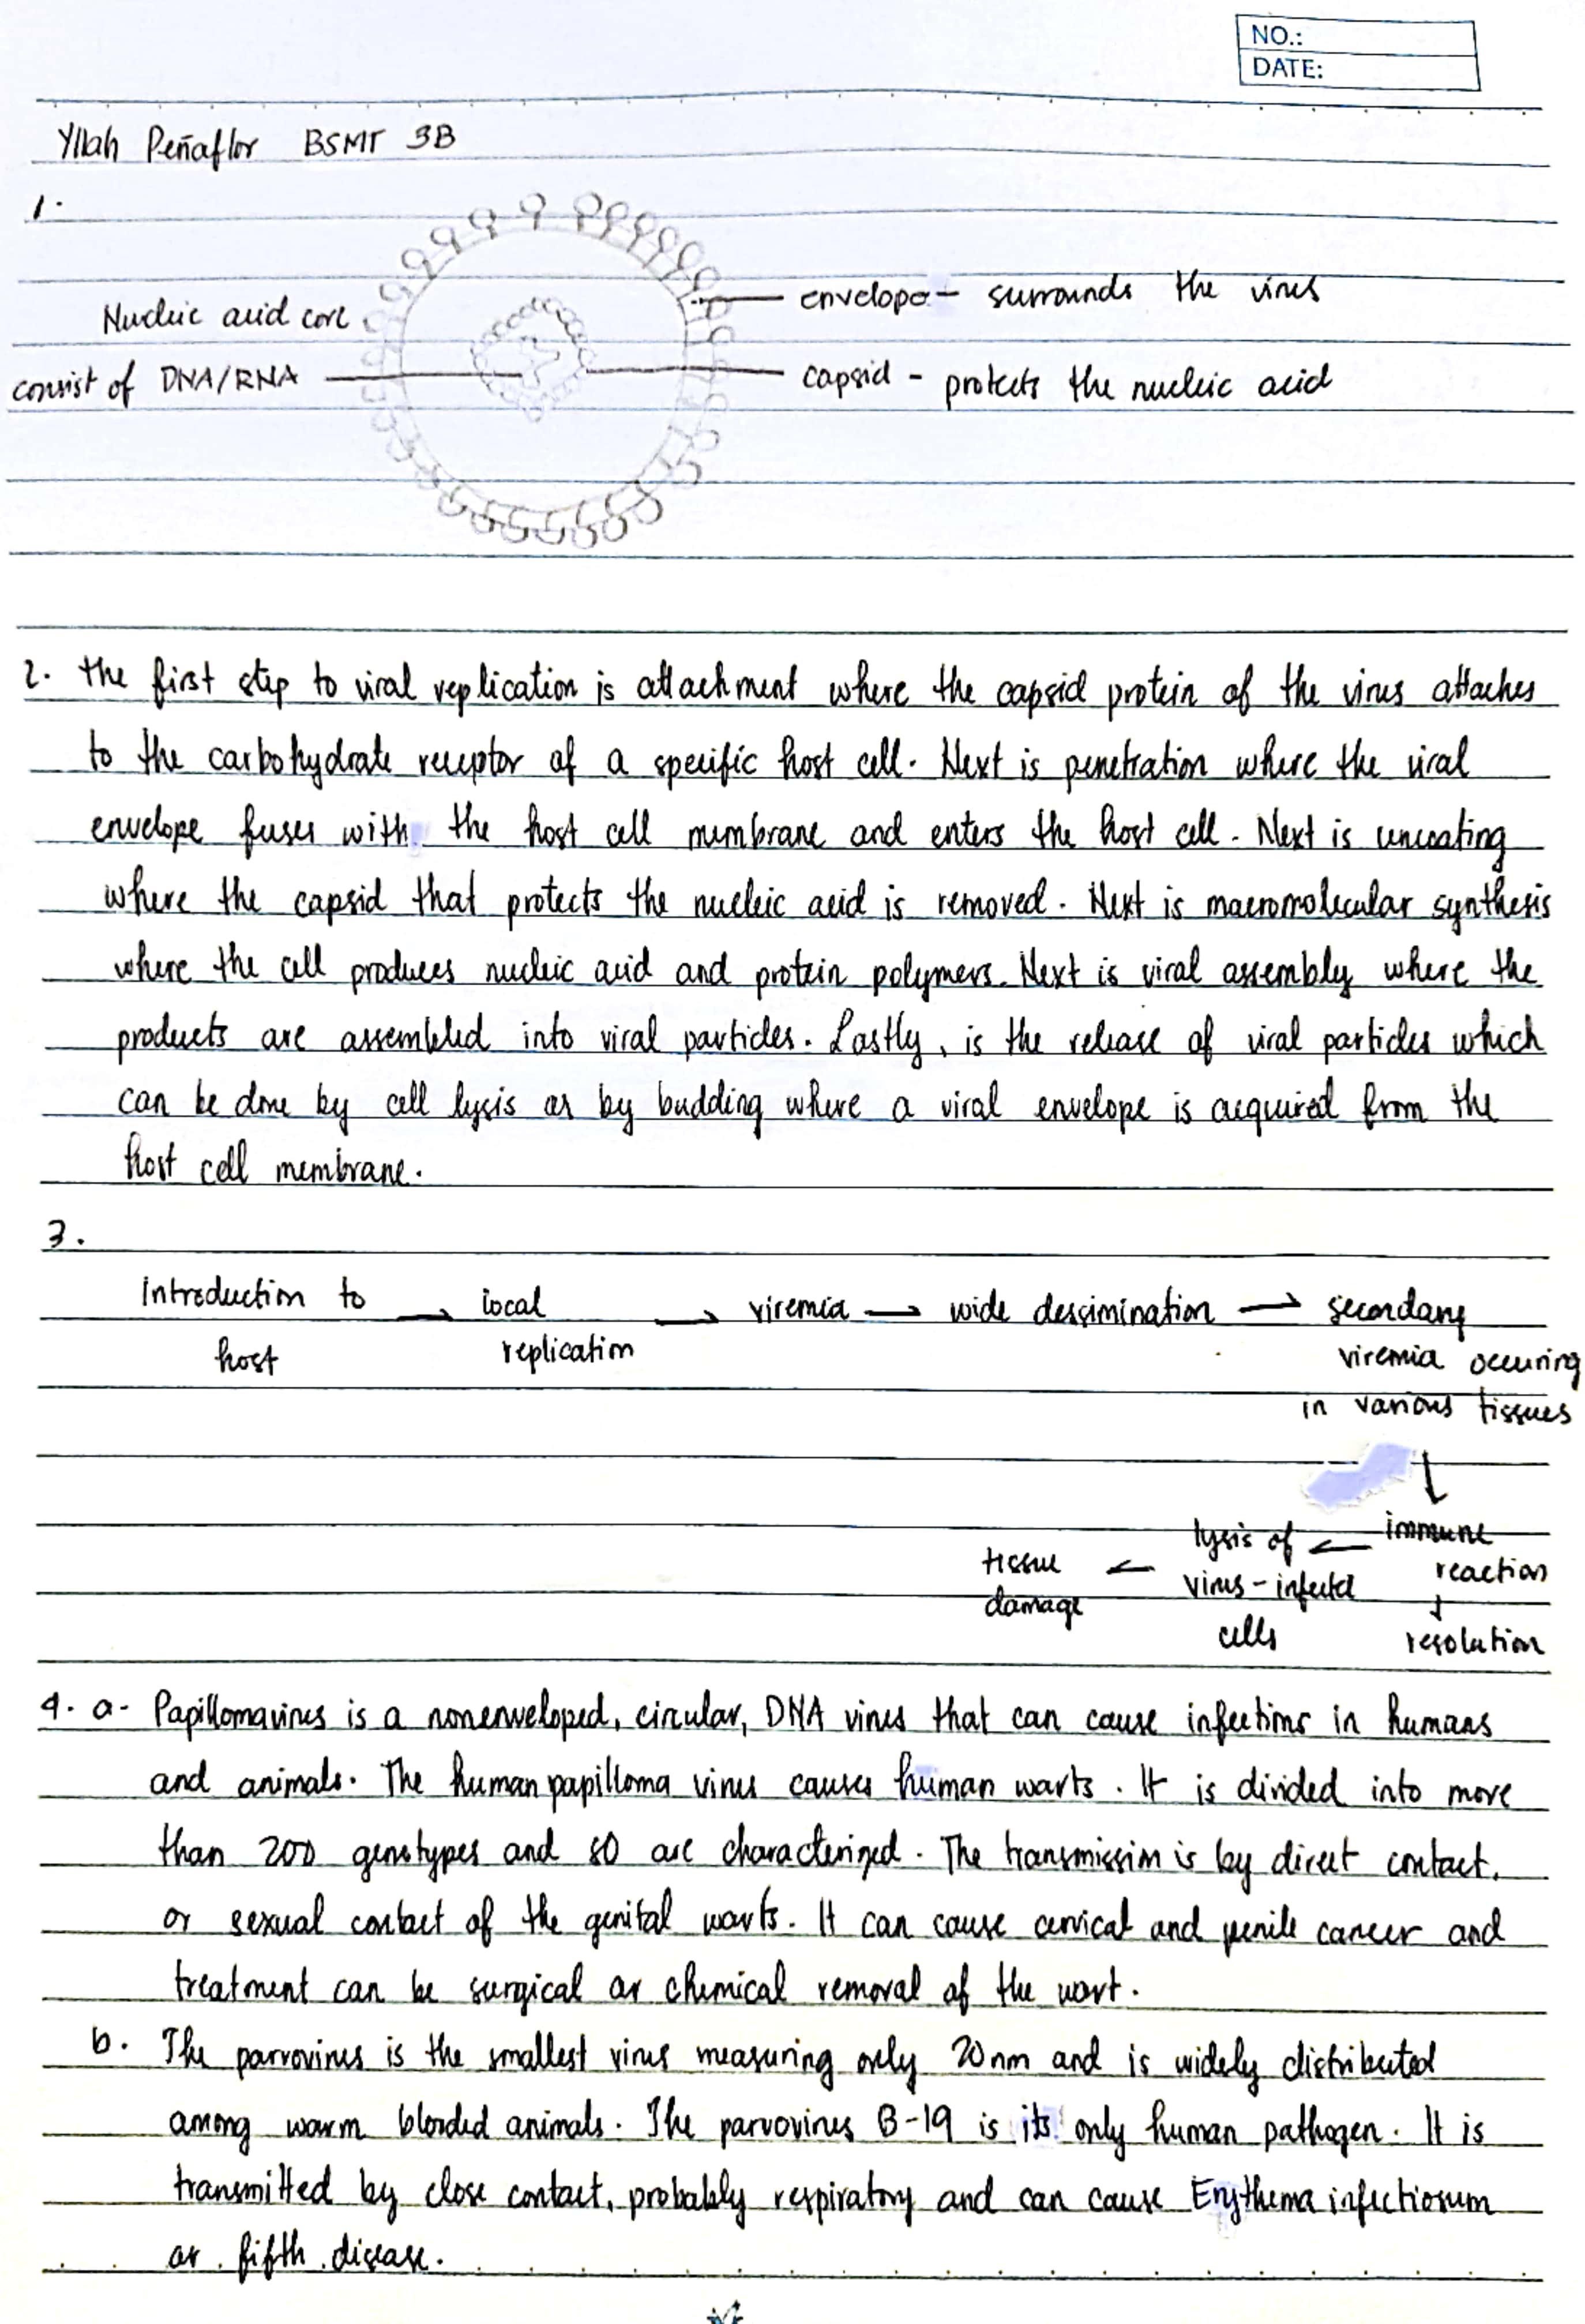 NO.:
DATE:
Yllah Peñaflor BSMT 3B
1.
Nucleic acid core
consist of DNA/RNA
envelope - surrounds the virus
capsid - protects the nucleic acid
2. the first step to viral replication is attachment where the capsid protein of the virus attaches
to the carbohydrate receptor of a specific host cell. Next is penetration where the viral
envelope fuses with the host cell membrane and enters the host cell. Next is uncoating
where the capsid that protects the nucleic acid is removed. Next is macromolecular synthesis
where the cell produces nucleic acid and protein polymers. Next is viral assembly where the
products are assembled into viral particles. Lastly, is the release of viral particles which
can be done by cell lysis or by budding where a viral envelope is acquired from the
host cell membrane.
3.
Introduction to host → local replication → viremia → wide dessimination → secondary
viremia occuring
in various tissues
↓
immune reaction → lysis of virus-infected cells → tissue damage
↓
resolution
4. a- Papillomavirus is a nonenveloped, circular, DNA virus that can cause infections in humans
and animals. The human papilloma virus causes human warts. It is divided into more
than 200 genotypes and 80 are characterized. The transmission is by direct contact,
or sexual contact of the genital warts. It can cause cervical and penile cancer and
treatment can be surgical or chemical removal of the wart.
b. The parvovirus is the smallest virus measuring only 20nm and is widely distributed
among warm blooded animals. The parvovirus B-19 is its only human pathogen. It is
transmitted by close contact, probably respiratory and can cause Erythema infectiosum
or fifth disease.